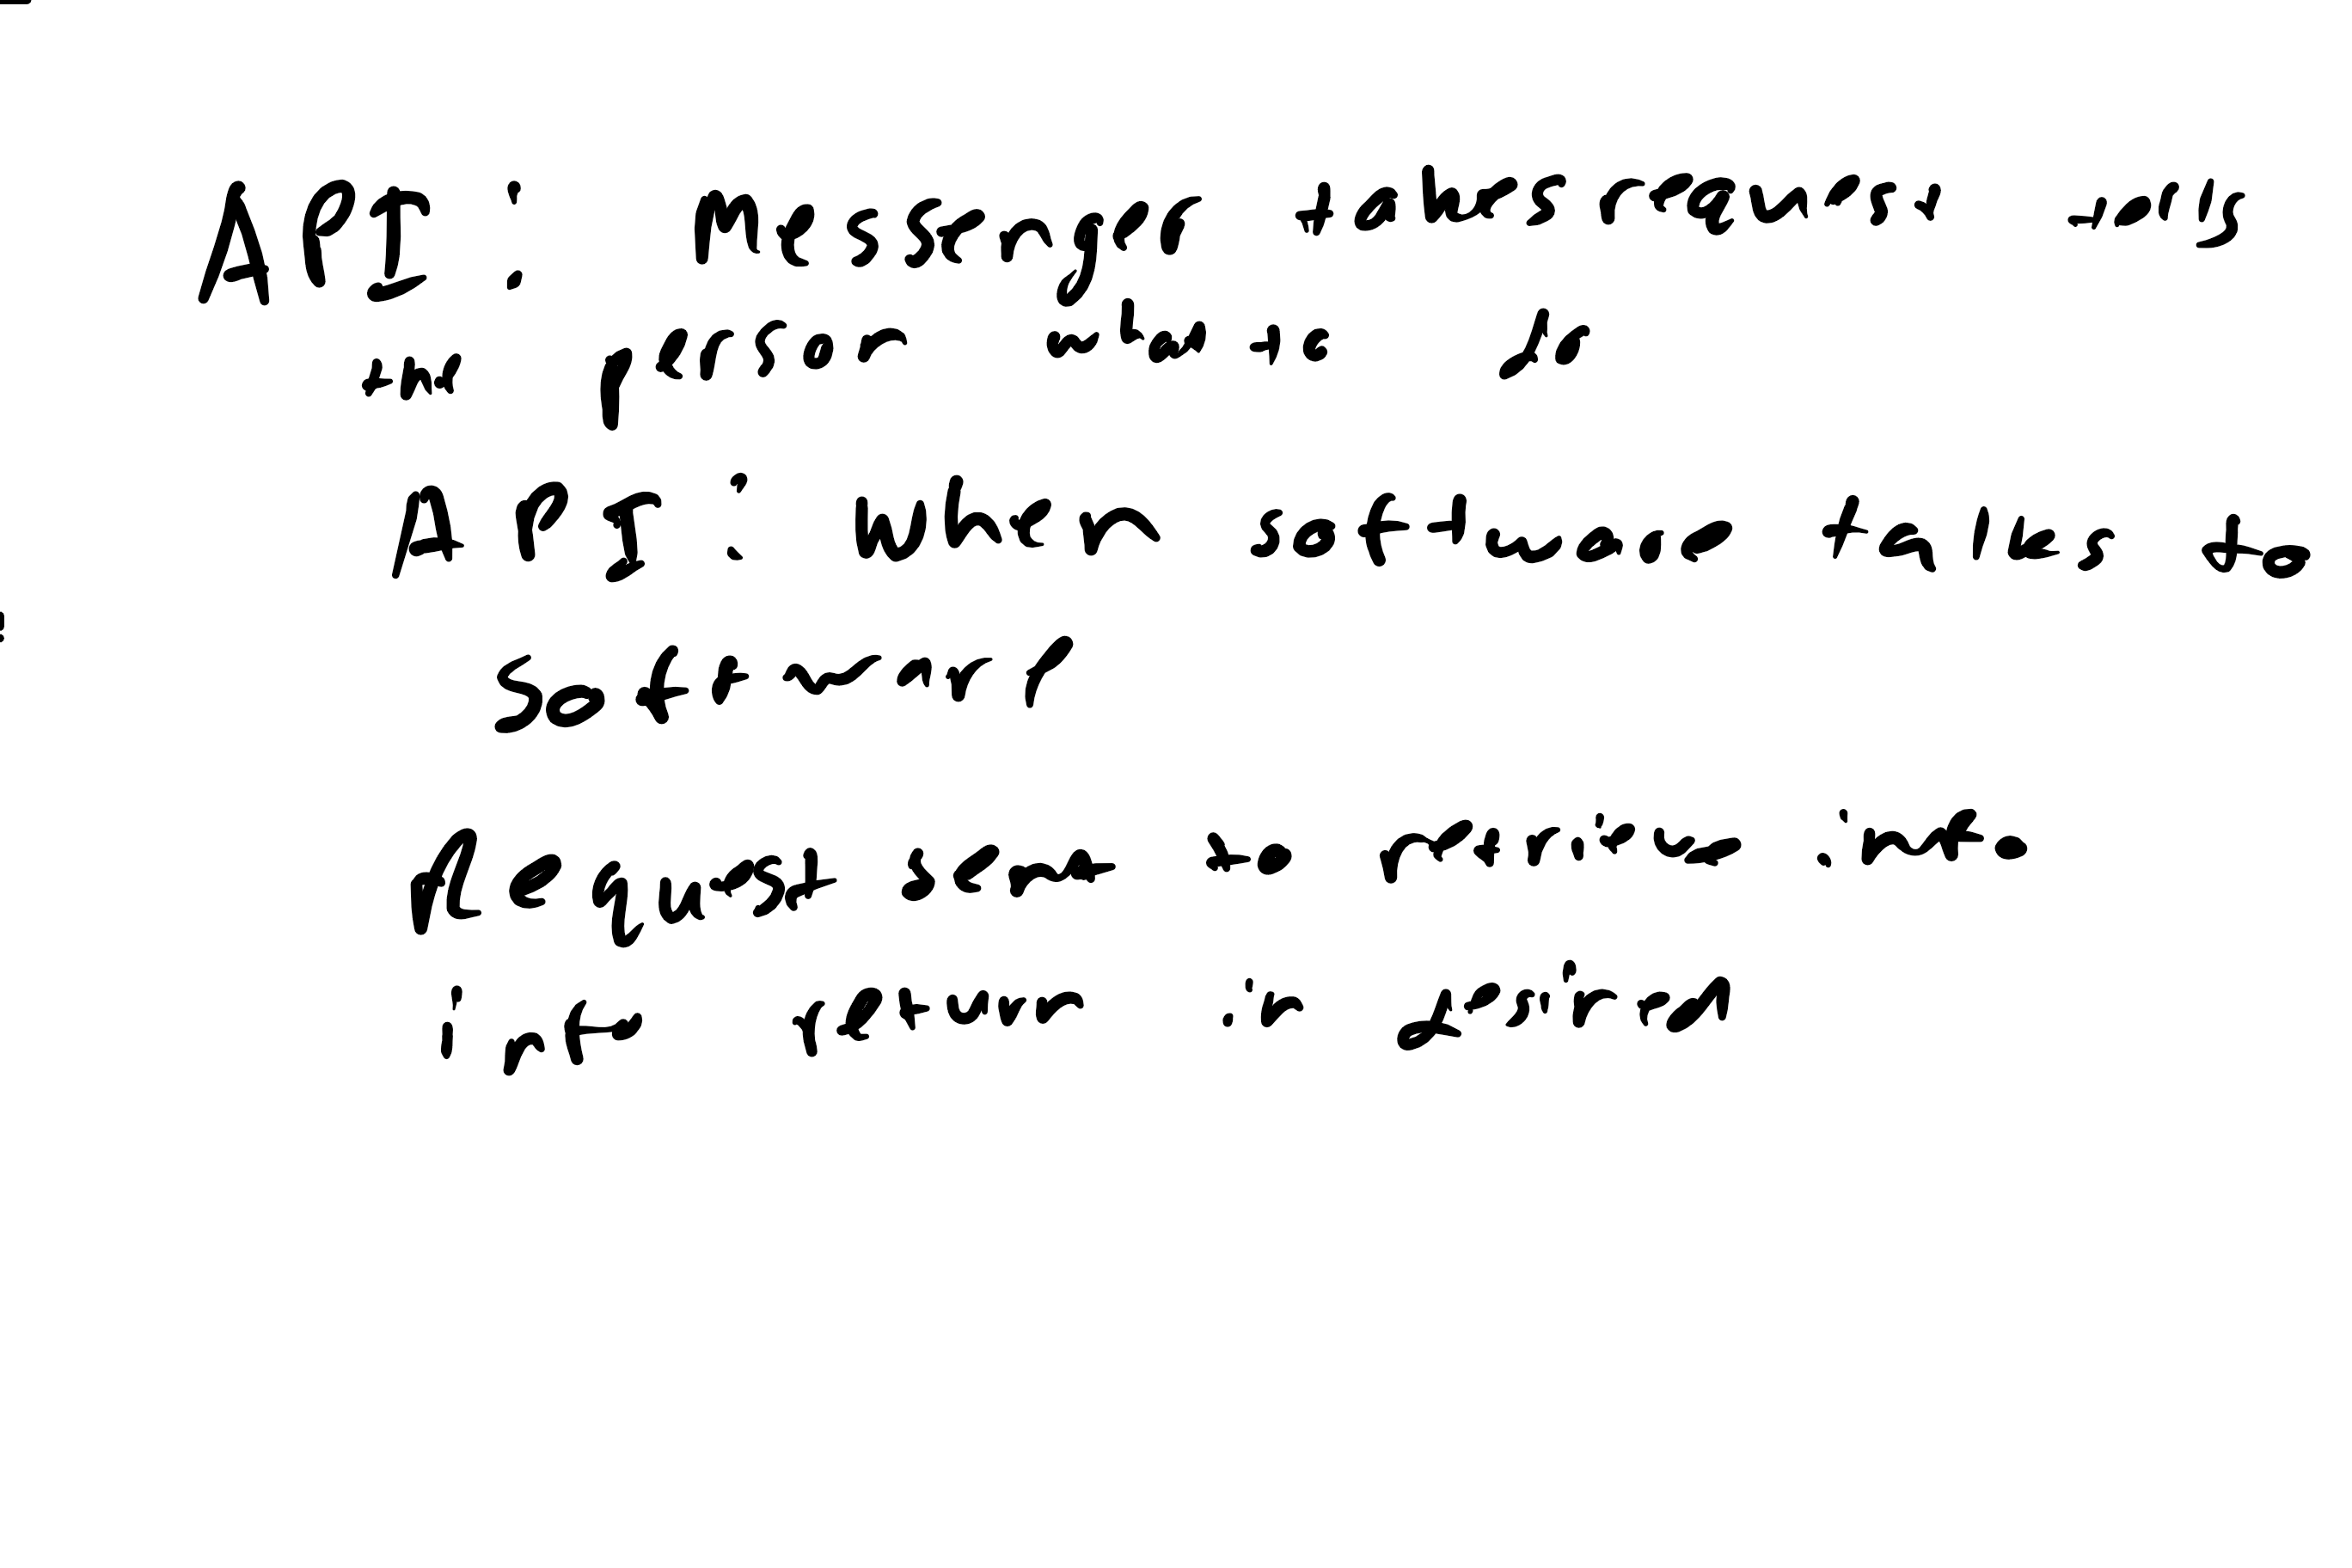 API: Messenger takes request tells
the person what to do
API: When software talks to
software
Request sent to retrieve info
info return in desired